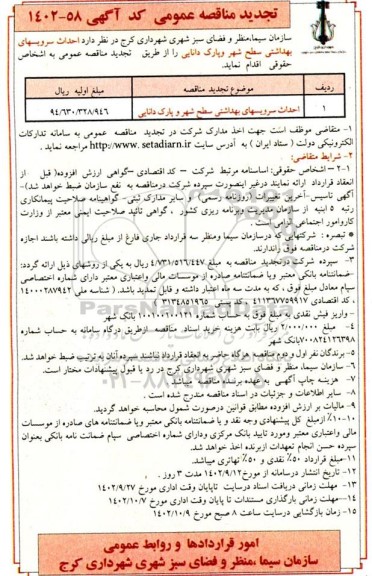 تجدید مناقصه عمومی کد آگهی ۵۸-۱۴۰۲
سازمان سیما،منظر و فضای سبز شهری شهرداری کرج در نظر دارد احداث سرویسهای
بهداشتی سطح شهر وپارک دانایی را از طریق تجدید مناقصه عمومی به اشخاص
حقوقی اقدام نماید.
ردیف موضوع تجدید مناقصه مبلغ اولیه ریال
۱ احداث سرویسهای بهداشتی سطح شهر و پارک دانایی ۹۴/۶۳۰/۳۲۸/۹۴۶
۱- متقاضی موظف است جهت اخذ مدارک شرکت در تجدید مناقصه عمومی به سامانه تدارکات
الکترونیکی دولت ( ستاد ایران ) به آدرس سایت http://www.setadiarn.ir مراجعه نماید .
۲- شرایط متقاضی:
۲-۱- اشخاص حقوقی: اساسنامه مرتبط شرکت – کد اقتصادی –گواهی ارزش افزوده( قبل از
انعقاد قرارداد ارائه نمایند درغیر اینصورت سپرده شرکت درمناقصه به نفع سازمان ضبط خواهد شد)–
آگهی تاسیس-آخرین تغییرات (روزنامه رسمی) و سایر مدارک ثبتی- گواهینامه صلاحیت پیمانکاری
رتبه ۵ ابنیه از سازمان مدیریت وبرنامه ریزی کشور ، گواهی تائید صلاحیت ایمنی معتبر از وزارت
کاروامور اجتماعی الزامی است .
تبصره : شرکتهایی که درسازمان سیما ومنظر سه قرارداد جاری فارغ از مبلغ ریالی داشته باشند اجازه
شرکت درمناقصه فوق راندارند.
۳- سپرده شرکت درتجدید مناقصه به مبلغ ۴/۷۳۱/۵۱۶/۴۴۷ ریال به یکی از روشهای ذیل ارائه گردد:
-ضمانتنامه بانکی معتبر ویا ضمانتنامه صادره از موسسات مالی واعتباری معتبر دارای شماره اختصاصی
سپام معادل مبلغ فوق ، که به مدت سه ماه اعتبار داشته و قابل تمدید باشد. ( شناسه ملی ۱۴۰۰۰۲۸۷۹۴۲
، کد اقتصادی ۴۱۱۳۶۷۷۵۹۹۱۷ ، کد پستی ۳۱۳۴۸۵۱۹۶۵ )
- واریز فیش نقدی به مبلغ فوق به حساب شماره بانک شهر
۴- مبلغ ۲/۰۰۰/۰۰۰ ریال بابت هزینه خرید اسناد مناقصه ازطریق درگاه سامانه به حساب شماره
۷۰۰۸۲۴۱۲۶۳۹۸ بانک شهر
۵- برندگان نفر اول و دوم مناقصه هرگاه حاضر به انعقاد قرارداد نباشند سپرده آنان به ترتیب ضبط خواهد شد.
۶- سازمان سیما، منظر و فضای سبز شهری شهرداری کرج در رد یا قبول پیشنهادات مختار است.
۷- هزینه چاپ آگهی به عهده برنده مناقصه میباشد.
۸- سایر اطلاعات و جزئیات در اسناد مناقصه مندرج شده است .
۹- مالیات بر ارزش افزوده مطابق قوانین درصورت شمول محاسبه خواهد گردید.
۱۰-۱۰٪ ازمبلغ کل پیشنهادی وجه نقد و یا ضمانتنامه بانکی معتبر ویا ضمانتنامه های صادره از موسسات
مالی واعتباری معتبر ومورد تایید بانک مرکزی ودارای شماره اختصاصی سپام ضمانت نامه بانکی بعنوان
سپرده حسن انجام تعهدات ازبرنده اخذ خواهد شد.
۱۱- مبلغ قرارداد ۵۰٪ نقدی و ۵۰٪ تهاتری میباشد.
۱۲- تاریخ انتشار درسامانه از مورخ ۱۴۰۲/۹/۱۲ مدت ۳ روز .
۱۳- مهلت زمانی دریافت اسناد درسایت تاپایان وقت اداری مورخ ۱۴۰۲/۹/۲۷
۱۴- مهلت زمانی بارگذاری مستندات تا پایان وقت اداری مورخ ۱۴۰۲/۱۰/۷
۱۵- زمان بازگشایی درسایت ساعت ۸ صبح مورخ ۱۴۰۲/۱۰/۹
امور قراردادها و روابط عمومی
سازمان سیما ،منظر و فضای سبز شهری شهرداری کرج